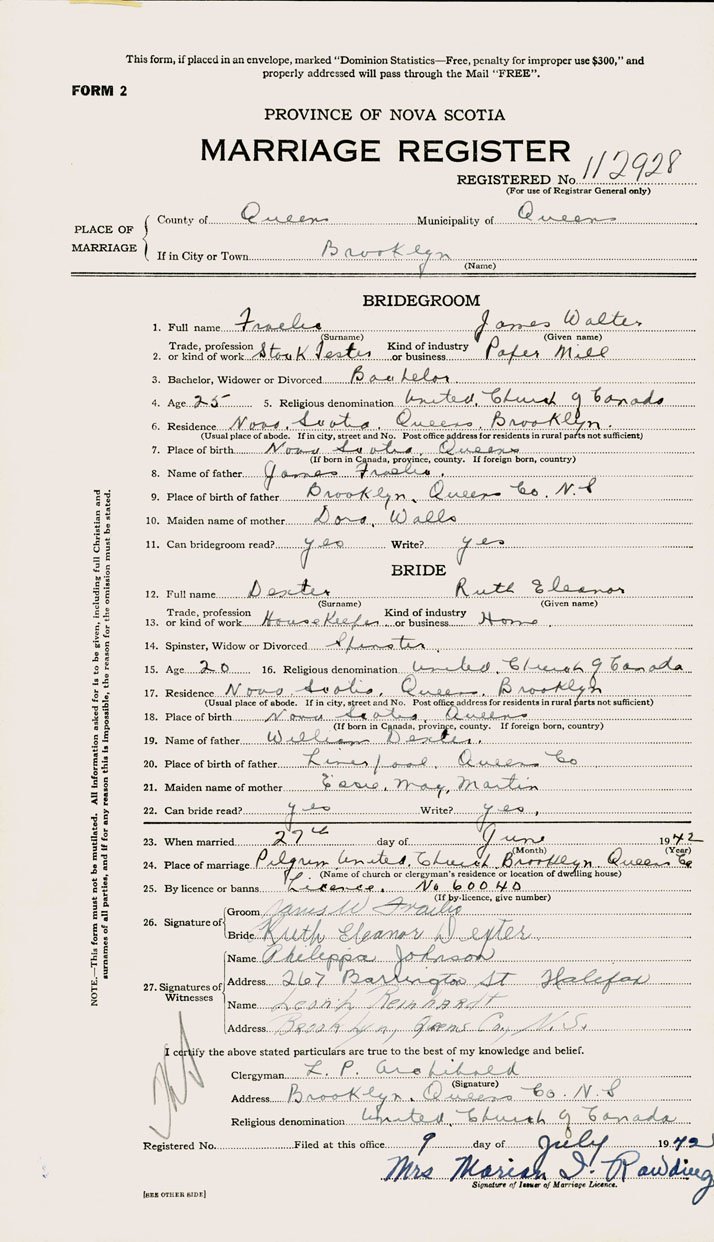 This form, if placed in an envelope, marked "Dominion Statistics—Free, penalty for improper use $300," and
properly addressed will pass through the Mail "FREE".
FORM 2
PROVINCE OF NOVA SCOTIA
MARRIAGE REGISTER
REGISTERED No. 112928
(For use of Registrar General only)
PLACE OF MARRIAGE
County of Queens Municipality of Queens
If in City or Town Brooklyn
(Name)
BRIDEGROOM
1. Full name Fraelic James Walter
(Surname) (Given name)
2. Trade, profession or kind of work Stock Tester Kind of industry or business Paper Mill
3. Bachelor, Widower or Divorced Bachelor
4. Age 25 5. Religious denomination United Church of Canada
6. Residence Nova Scotia, Queens, Brooklyn.
(Usual place of abode. If in city, street and No. Post office address for residents in rural parts not sufficient)
7. Place of birth Nova Scotia, Queens
(If born in Canada, province, county. If foreign born, country)
8. Name of father James Fraelic.
9. Place of birth of father Brooklyn, Queens Co. N.S
10. Maiden name of mother Dora, Walls
11. Can bridegroom read? yes Write? yes
BRIDE
12. Full name Dexter Ruth Eleanor
(Surname) (Given name)
13. Trade, profession or kind of work HouseKeeper Kind of industry or business Home
14. Spinster, Widow or Divorced Spinster
15. Age 20 16. Religious denomination United, Church of Canada
17. Residence Nova Scotia, Queens, Brooklyn
(Usual place of abode. If in city, street and No. Post office address for residents in rural parts not sufficient)
18. Place of birth Nova Scotia, Queens
(If born in Canada, province, county. If foreign born, country)
19. Name of father William Dexter.
20. Place of birth of father Liverpool, Queens Co
21. Maiden name of mother Essie, May, Martin
22. Can bride read? yes Write? yes,
23. When married 27th day of June 1942
(Month) (Year)
24. Place of marriage Pilgrim United, Church, Brooklyn, Queens Co
(Name of church or clergyman's residence or location of dwelling house)
25. By licence or banns Licence. No 60040
(If by licence, give number)
26. Signature of
Groom James W Fraelic
Bride Ruth Eleanor Dexter
27. Signatures of Witnesses
Name Philippa Johnson
Address 267 Barrington St Halifax
Name Reinhardt
Address Brooklyn, Queens Co, N.S.
I certify the above stated particulars are true to the best of my knowledge and belief.
Clergyman L. P. Archibald
(Signature)
Address Brooklyn, Queens Co. N.S
Religious denomination United, Church of Canada
Registered No. Filed at this office 9 day of July 1942
Mrs Marian I. Rawding
Signature of Issuer of Marriage Licence.
[SEE OTHER SIDE]
NOTE.—This form must not be mutilated. All information asked for is to be given, including full Christian and
surnames of all parties, and if for any reason this is impossible, the reason for the omission must be stated.